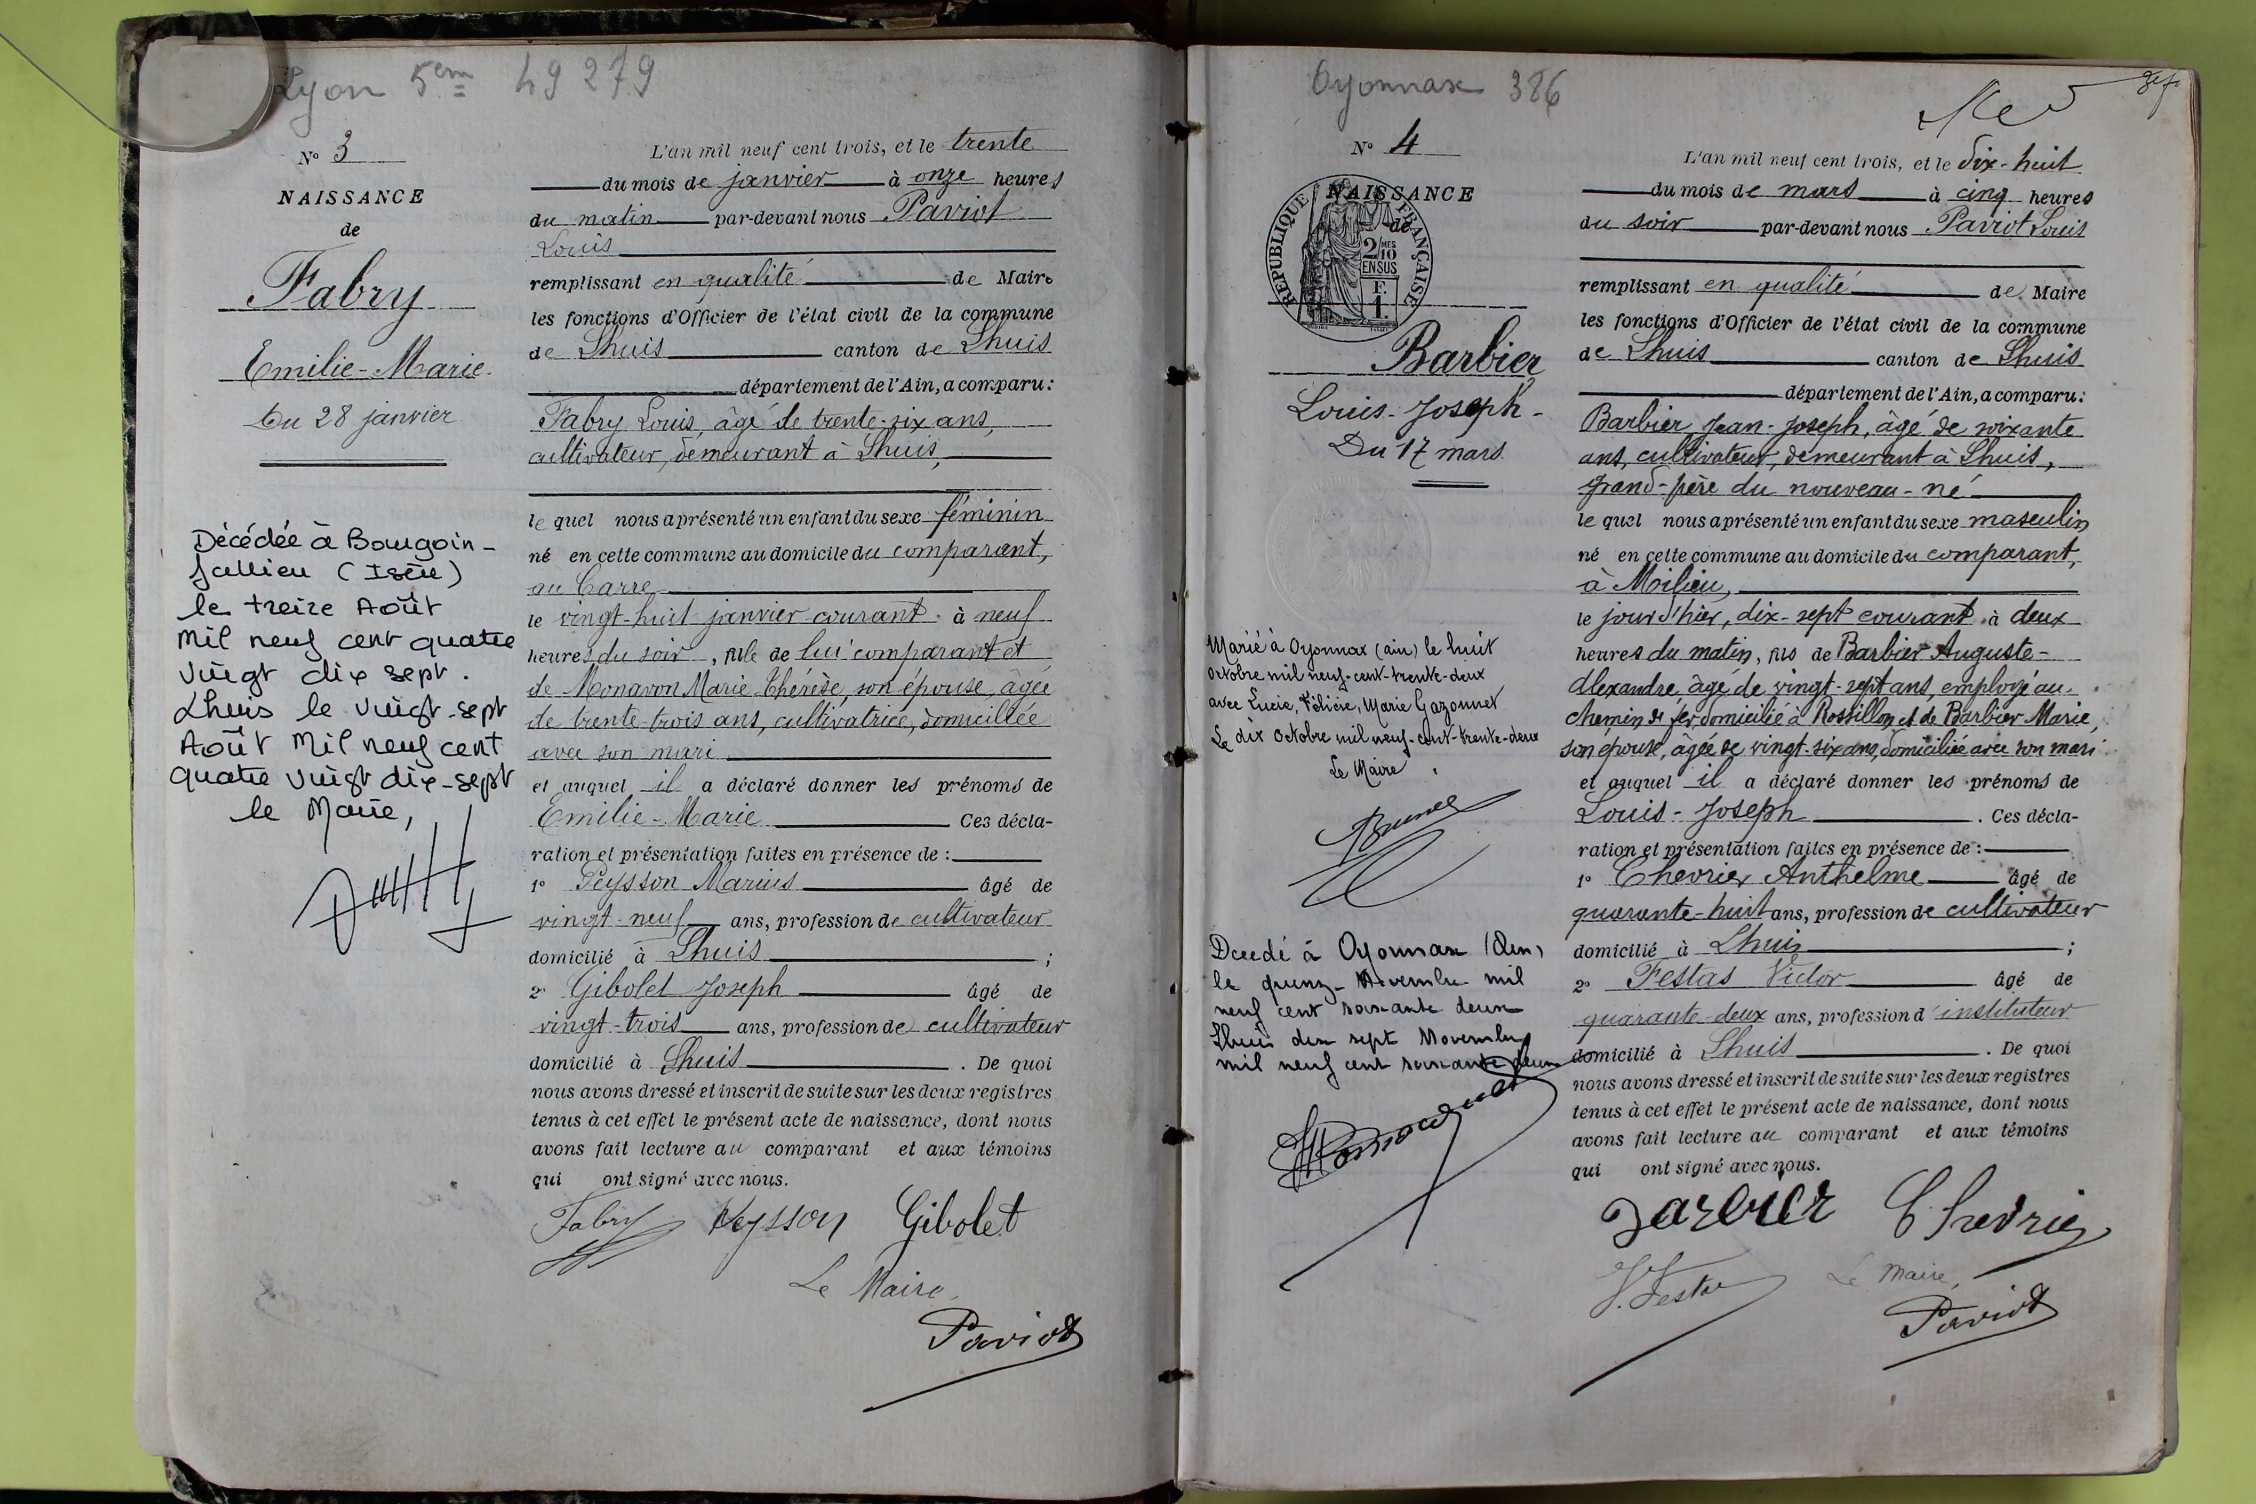 Lyon 5em 49 279
N° 3
NAISSANCE
de
Fabry
Emilie-Marie.
Du 28 janvier
Décédée à Bourgoin-
Jallieu (Isère)
le treize Août
Mil neuf cent quatre
vingt dix sept.
Lhuis le vingt-sept
Août Mil neuf cent
quatre vingt dix-sept
le Maire,
L'an mil neuf cent trois, et le trente
du mois de janvier à onze heures
du matin par-devant nous Paviot
Louis
remplissant en qualité de Maire
les fonctions d'Officier de l'état civil de la commune
de Lhuis canton de Lhuis
département de l'Ain, a comparu:
Fabry Louis, âgé de trente-six ans,
cultivateur, demeurant à Lhuis,
le quel nous a présenté un enfant du sexe féminin
né en cette commune au domicile du comparant,
au Carre
le vingt-huit janvier courant à neuf
heures du soir, fille de lui comparant et
de Monavon Marie Thérèse, son épouse, âgée
de trente-trois ans, cultivatrice, domiciliée
avec son mari
et auquel il a déclaré donner les prénoms de
Emilie-Marie Ces décla-
ration et présentation faites en présence de :
1° Peysson Marius âgé de
vingt-neuf ans, profession de cultivateur
domicilié à Lhuis ;
2° Gibolet Joseph âgé de
vingt-trois ans, profession de cultivateur
domicilié à Lhuis . De quoi
nous avons dressé et inscrit de suite sur les deux registres
tenus à cet effet le présent acte de naissance, dont nous
avons fait lecture au comparant et aux témoins
qui ont signé avec nous.
Fabry Peysson Gibolet
Le Maire,
Paviot
Oyonnax 386
N° 4
NAISSANCE
de
REPUBLIQUE FRANÇAISE
2/10 MES
EN SUS
F.
1.
Barbier
Louis-Joseph-
Du 17 mars
Marié à Oyonnax (ain) le huit
octobre mil neuf-cent-trente-deux
avec Lucie, Félicie, Marie Gazonnet
Le dix octobre mil neuf-cent-trente-deux
Le Maire
Décédé à Oyonnax (Ain)
le quinze Novembre mil
neuf cent soixante deux
Lhuis dix sept Novembre
mil neuf cent soixante deux
L'an mil neuf cent trois, et le dix-huit
du mois de mars à cinq heures
du soir par-devant nous Paviot Louis
remplissant en qualité de Maire
les fonctions d'Officier de l'état civil de la commune
de Lhuis canton de Lhuis
département de l'Ain, a comparu:
Barbier Jean-Joseph, âgé de soixante
ans, cultivateur, demeurant à Lhuis,
grand-père du nouveau-né
le quel nous a présenté un enfant du sexe masculin
né en cette commune au domicile du comparant,
à Milieu,
le jour d'hier, dix-sept courant à deux
heures du matin, fils de Barbier Auguste-
Alexandre, âgé de vingt-sept ans, employé au
chemin de fer domicilié à Rossillon, et de Barbier Marie,
son épouse, âgée de vingt-six ans, domiciliée avec son mari
et auquel il a déclaré donner les prénoms de
Louis-Joseph . Ces décla-
ration et présentation faites en présence de :
1° Chevrier Anthelme âgé de
quarante-huit ans, profession de cultivateur
domicilié à Lhuis ;
2° Festas Victor âgé de
quarante-deux ans, profession d'instituteur
domicilié à Lhuis . De quoi
nous avons dressé et inscrit de suite sur les deux registres
tenus à cet effet le présent acte de naissance, dont nous
avons fait lecture au comparant et aux témoins
qui ont signé avec nous.
Barbier Chevrier
V. Festas Le Maire,
Paviot